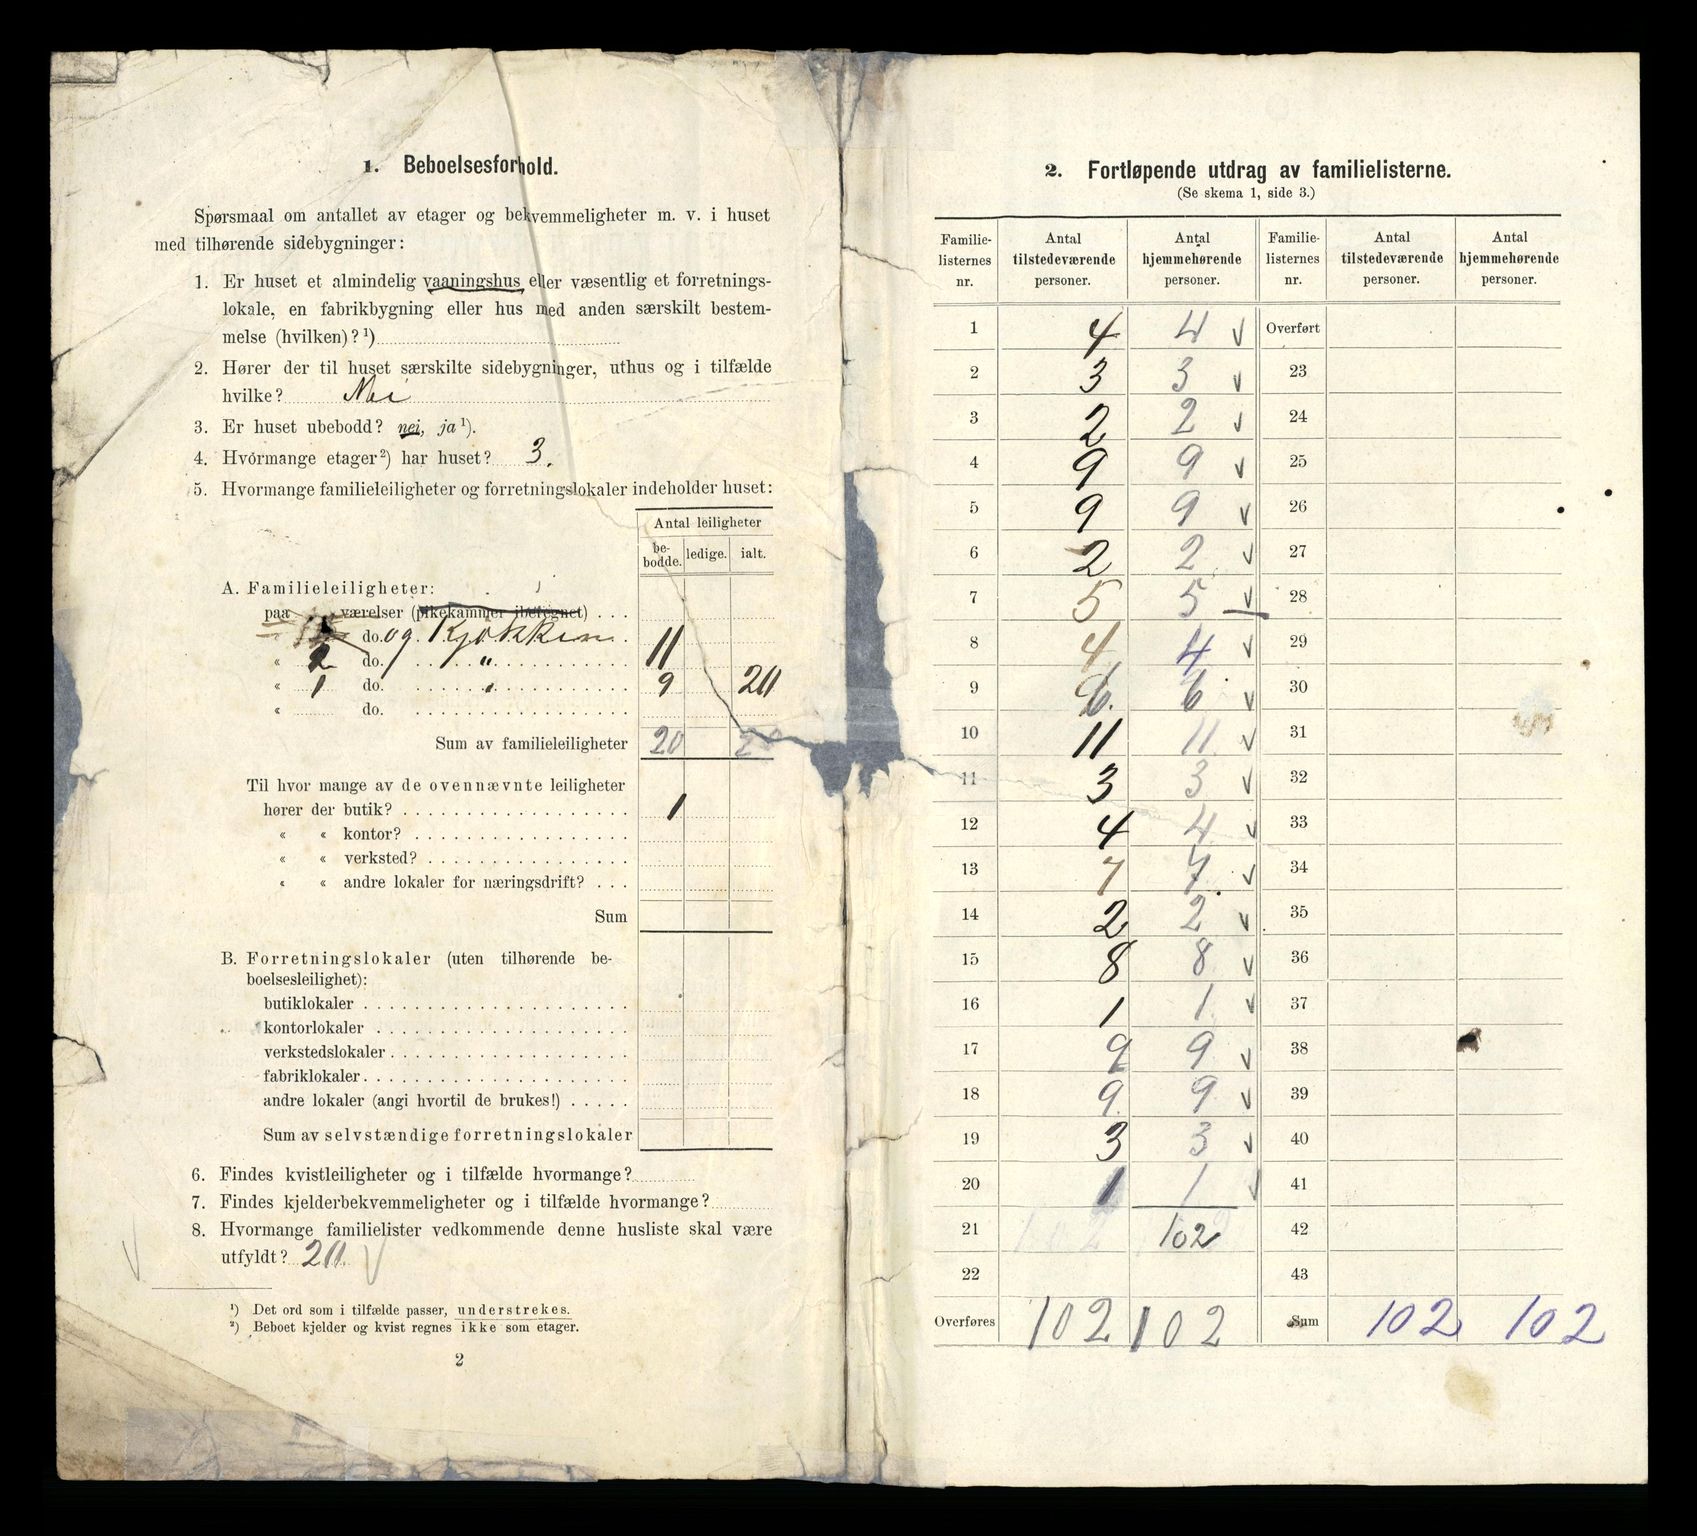 1. Beboelsesforhold.
Spørsmaal om antallet av etager og bekvemmeligheter m. v. i huset
med tilhørende sidebygninger:
1. Er huset et almindelig vaaningshus eller væsentlig et forretnings-
lokale, en fabrikbygning eller hus med anden særskilt bestem-
melse (hvilken)? ¹)
2. Hører der til huset særskilte sidebygninger, uthus og i tilfælde
hvilke? Nei
3. Er huset ubebodd? nei, ja ¹).
4. Hvormange etager ²) har huset? 3.
5. Hvormange familieleiligheter og forretningslokaler indeholder huset:
Antal leiligheter
be-
bodde. ledige. ialt.
A. Familieleiligheter:
paa værelser (pikekammer iberegnet) . . .
do. og Kjøkken
« 2 do. " 11
« 1 do. " 9 20
« do.
Sum av familieleiligheter 20 20
Til hvor mange av de ovennævnte leiligheter
hører der butik? 1
« « kontor?
« « verksted?
« « andre lokaler for næringsdrift? . . .
Sum
B. Forretningslokaler (uten tilhørende be-
boelsesleilighet):
butiklokaler
kontorlokaler
verkstedslokaler
fabriklokaler
andre lokaler (angi hvortil de brukes!)
Sum av selvstændige forretningslokaler
6. Findes kvistleiligheter og i tilfælde hvormange?
7. Findes kjelderbekvemmeligheter og i tilfælde hvormange?
8. Hvormange familielister vedkommende denne husliste skal være
utfyldt? 20
¹) Det ord som i tilfælde passer, understrekes.
²) Beboet kjelder og kvist regnes ikke som etager.
2
2. Fortløpende utdrag av familielisterne.
(Se skema 1, side 3.)
Familie- Antal Antal Familie- Antal Antal
listernes tilstedeværende hjemmehørende listernes tilstedeværende hjemmehørende
nr. personer. personer. nr. personer. personer.
1 4 4 √ Overført
2 3 3 √ 23
3 2 2 √ 24
4 9 9 √ 25
5 9 9 √ 26
6 2 2 √ 27
7 5 5 √ 28
8 4 4 √ 29
9 6. 6 √ 30
10 11 11 √ 31
11 3 3 √ 32
12 4 4 √ 33
13 7 7 √ 34
14 2 2 √ 35
15 8 8 √ 36
16 1 1 √ 37
17 9 9 √ 38
18 9 9 √ 39
19 3 3 √ 40
20 1 1 √ 41
21 102 102 42
22 43
Overføres 102 102 Sum 102 102